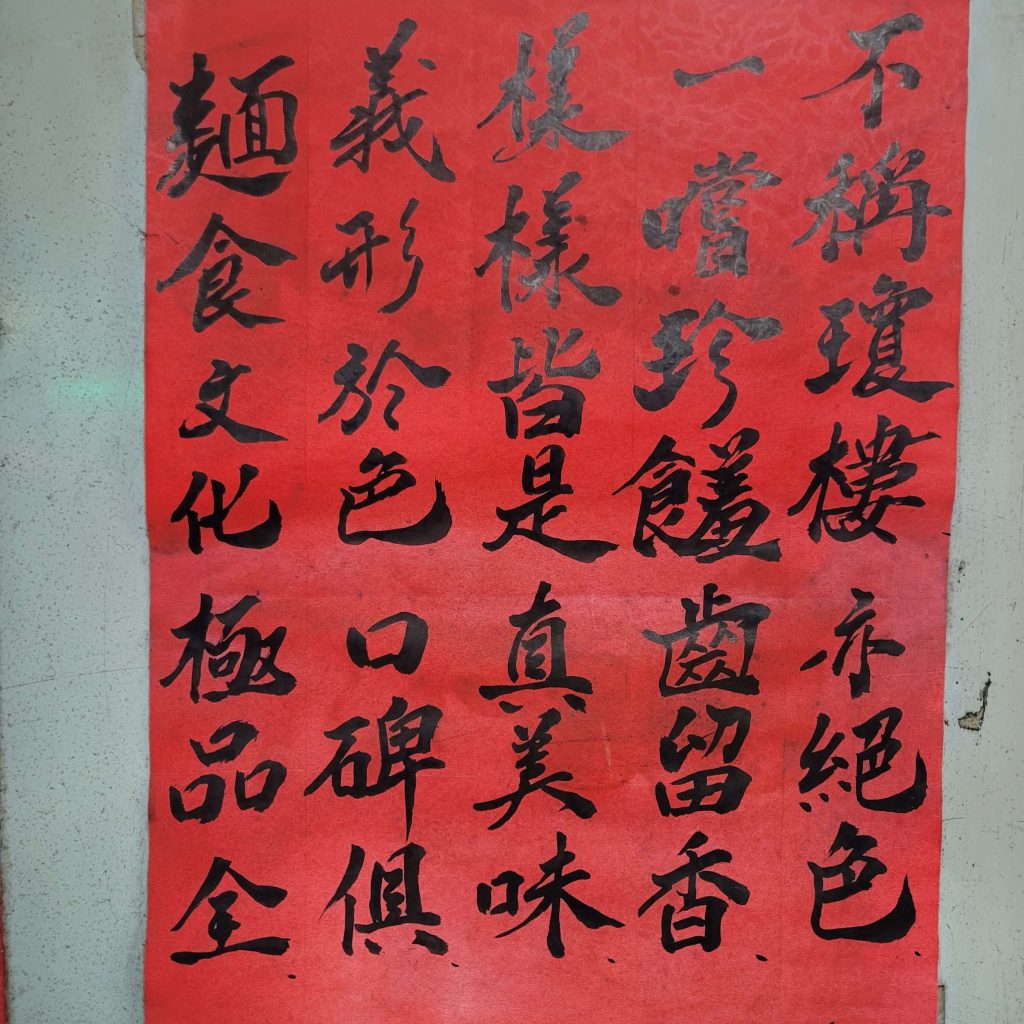 不稱瓊樓亦絕色
一嚐珍饈齒留香
樣樣皆是真美味
義形於色口碑俱
麵食文化極品全